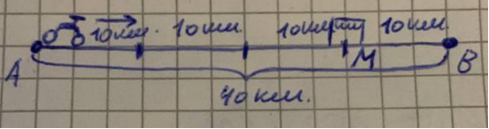 10км. 10км. 10км 10км.
A M B
40км.